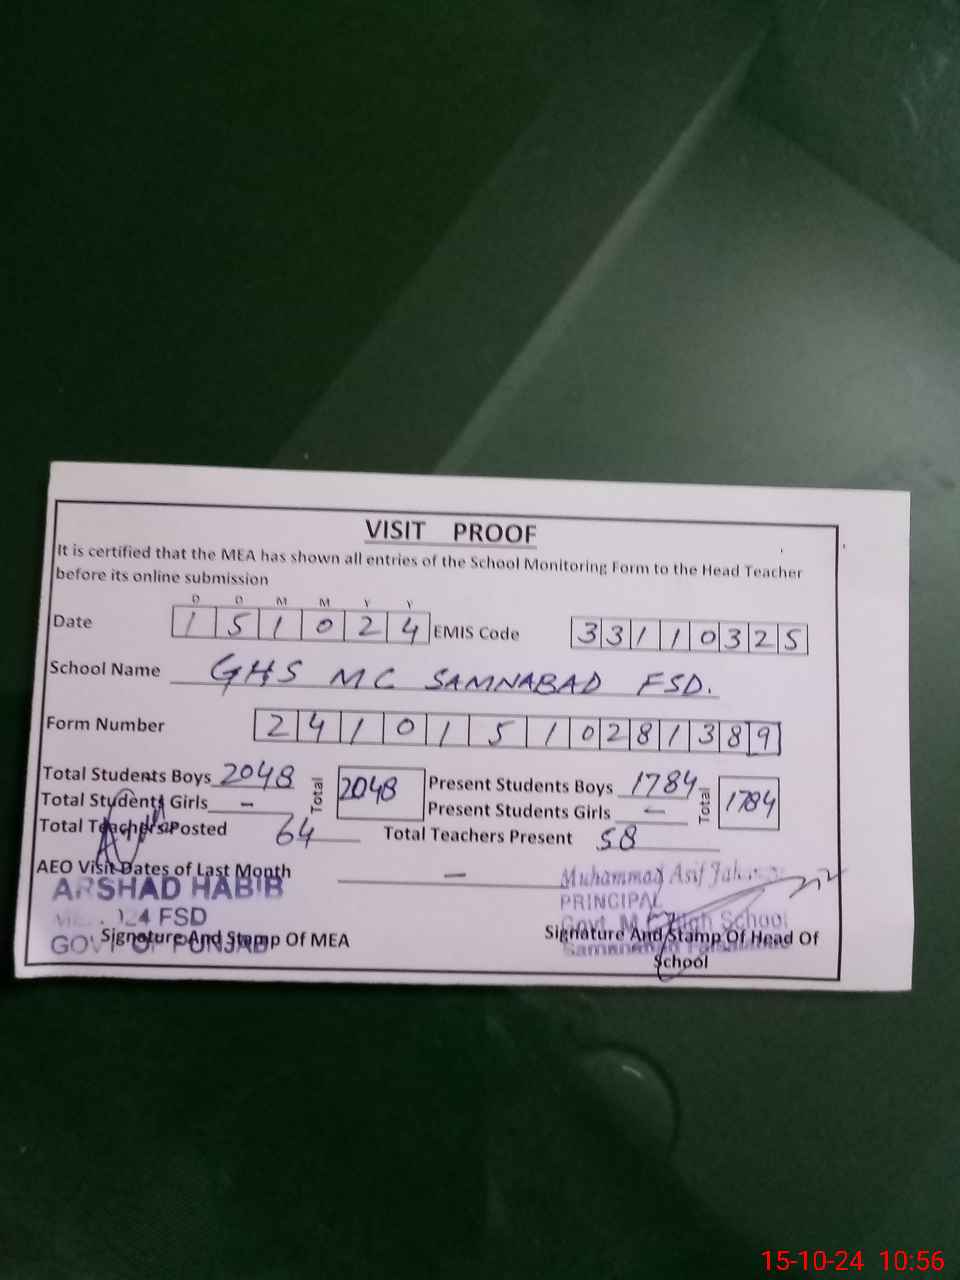 VISIT PROOF
It is certified that the MEA has shown all entries of the School Monitoring Form to the Head Teacher
before its online submission
D D M M Y Y
Date 151024 EMIS Code 33110325
School Name GHS MC SAMNABAD FSD.
Form Number 24101510281389
Total Students Boys 2048 Total 2048 Present Students Boys 1784 Total 1784
Total Students Girls - Present Students Girls -
Total Teachers Posted 64 Total Teachers Present 58
AEO Visit Dates of Last Month -
ARSHAD HABIB
24 FSD
GOVT OF PUNJAB
Signature And Stamp Of MEA
Muhammad Asif
PRINCIPAL
Govt. M.C. High School
Signature And Stamp Of Head Of
School
15-10-24 10:56